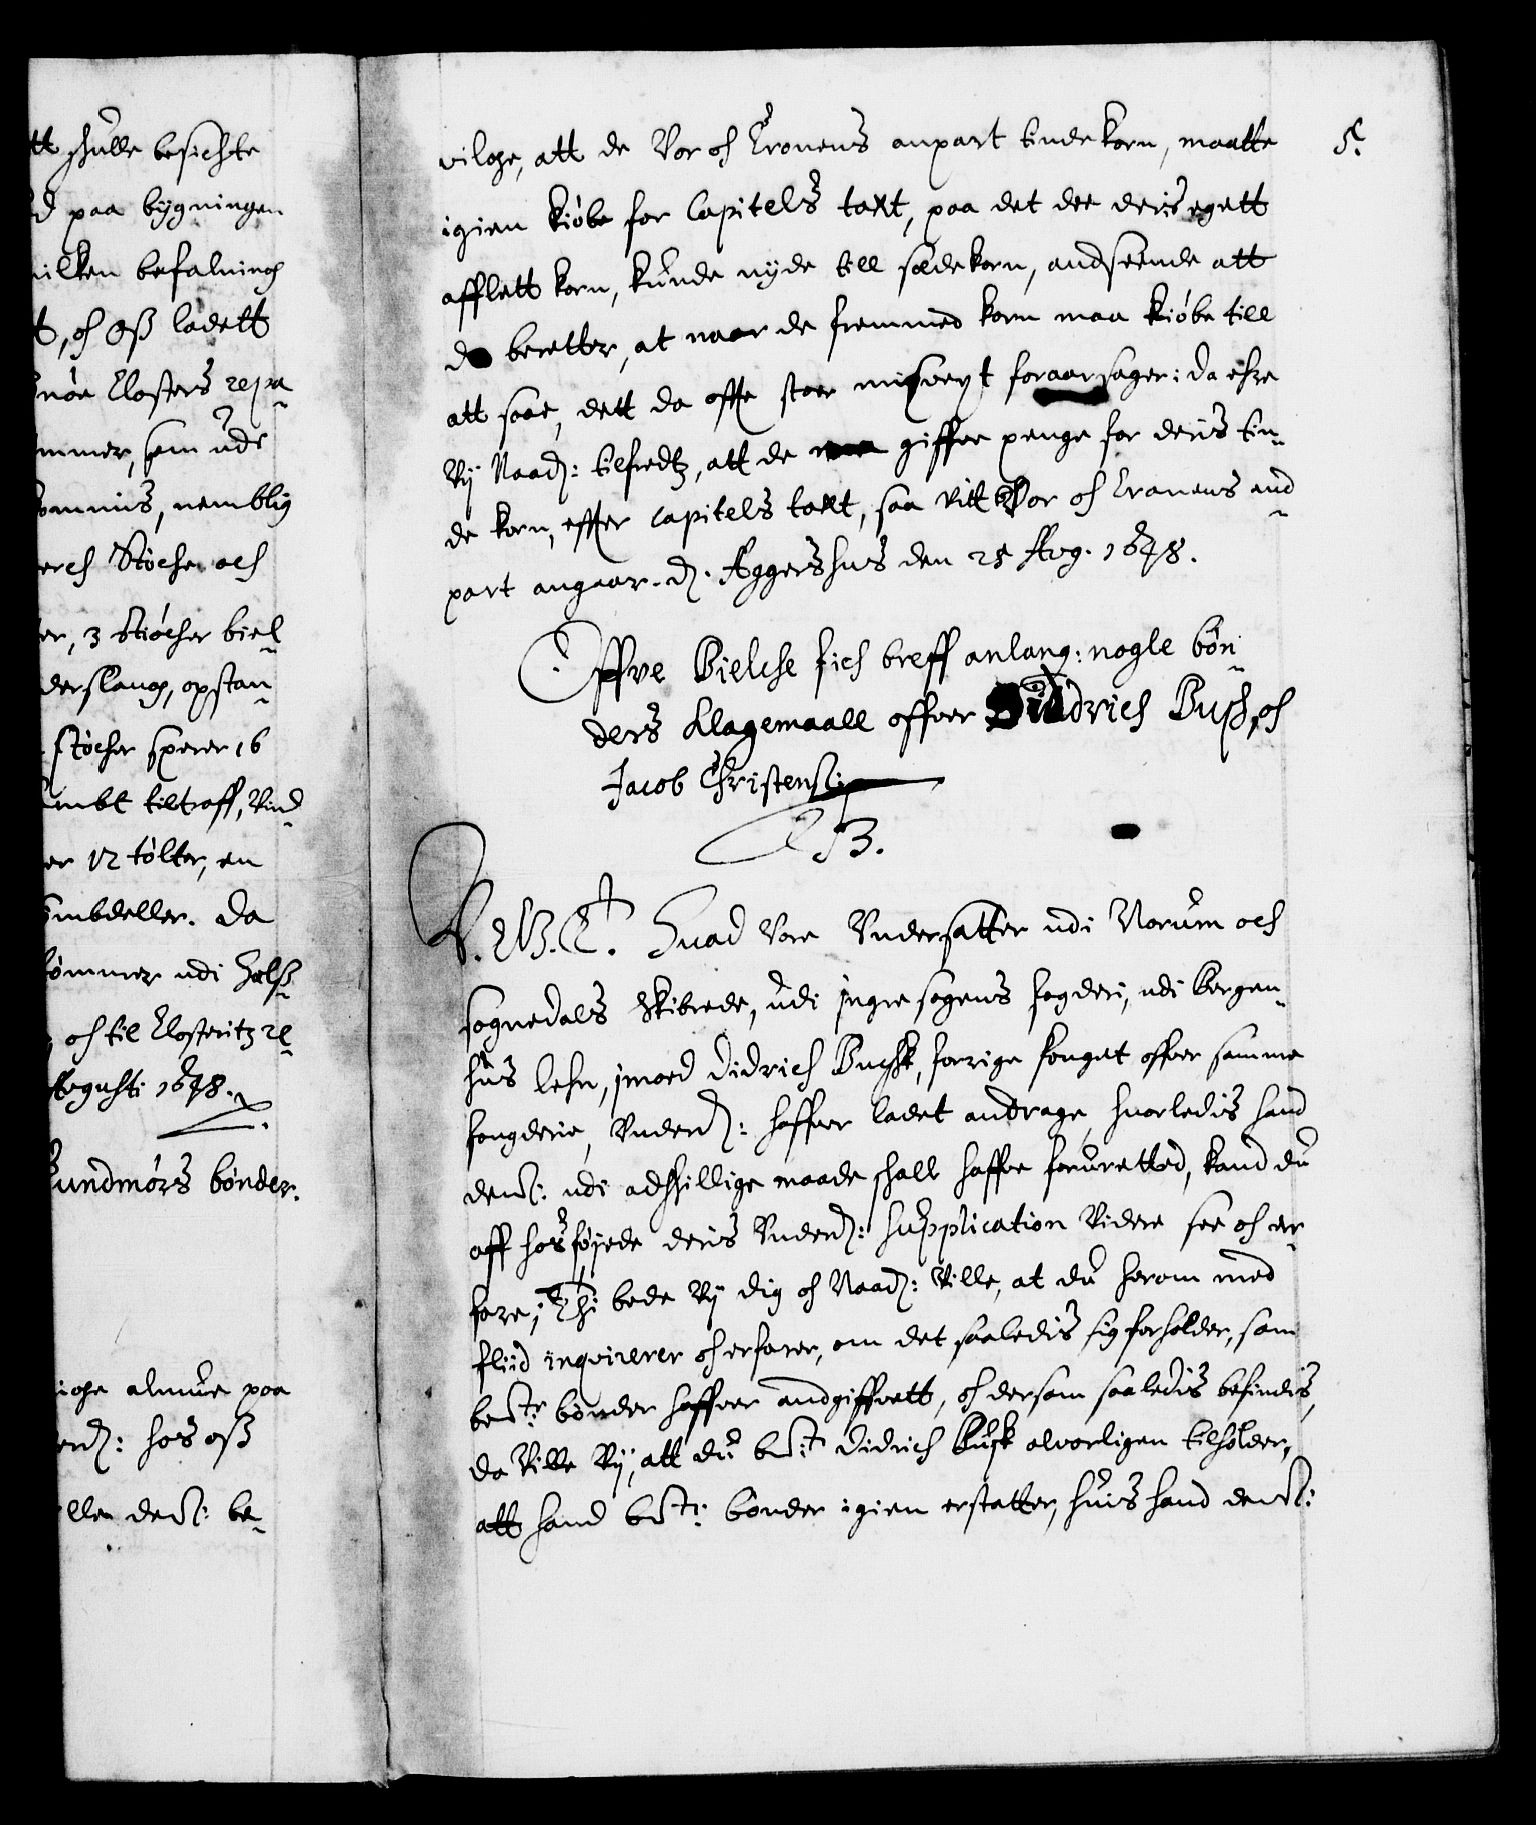 tt schulle besichte
d paa bygningen
uilken befalning
t, och Oß ladett
nøe Closters repa¬
mmer, som udi
kommis, nemblig
erch Støcher och
er, 3 Støcher biel¬
derslaug, opstan¬
støcher sperer 16
ambt tiltraff, Vind¬
er 12 tølter, en
ombdeller. Da
tømmer udi Hals¬
, och til Closteritz re¬
Augusti 1648.
Sundmørs bønder.
ige almue paa
erd: hos oß
lle den: be¬
5.
vilge, att de Vor och Cronens anpart tinde korn, maatte
igien kiøbe for Capitels taxt, paa det dee deris egett
afflett korn, kunde nyde till sædekorn, andseende att
de beretter, at naar de fremmed korn maa kiøbe till
att saae, dett da offte stoer misvext foraarsager: da ehre
Vij Naad: tilfredtz, att de giffver penge for deris tin¬
de korn, effter Capitels taxt, saa vitt Vor och Cronens and¬
part angaar. d. Aggershus den 25 Aug. 1648.
Offve Bielche fich breff anlang: nogle bøn¬
ders Klagemaall offver Didrich Busch, och
Jacob Christens:
C 3.
V. G. T. Huad Vore Vndersatter udi Norum och
sognedals Skibrede, udi jngre sogens fogderi, udi bergen¬
hus lehn, jmod Didrich Buschk, forrige fouget offver samme
fougderie, Vnderd: haffver ladet andrage, huorledis hand
dem: udi adskillige maade schall haffve foruretted, kand du
aff hosføyede deris Vnderd: Supplication Videre see och er¬
fare; Thi bede Vij dig och Naad: Ville, at du herom med
fliid inqvirerer och erfarer, om det saaledis sig forholder, som
bem.te bønder haffver andgiffvett, och dersom saaledis befindis,
da Ville Vij, att du bem.te Didrich Busk alvorligen tilholder,
att hand bem.te bønder igien erstatter, huis hand dem: